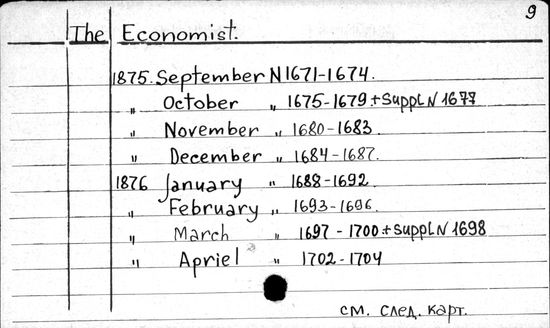 9
The Economist.
1875. September N 1671-1674.
„ October „ 1675-1679 + Suppl. N 1677
„ November „ 1680-1683.
„ December „ 1684-1687.
1876 January „ 1688-1692.
„ February „ 1693-1696.
„ March „ 1697 - 1700 + Suppl. N 1698
„ Apriel „ 1702-1704
см. след. карт.